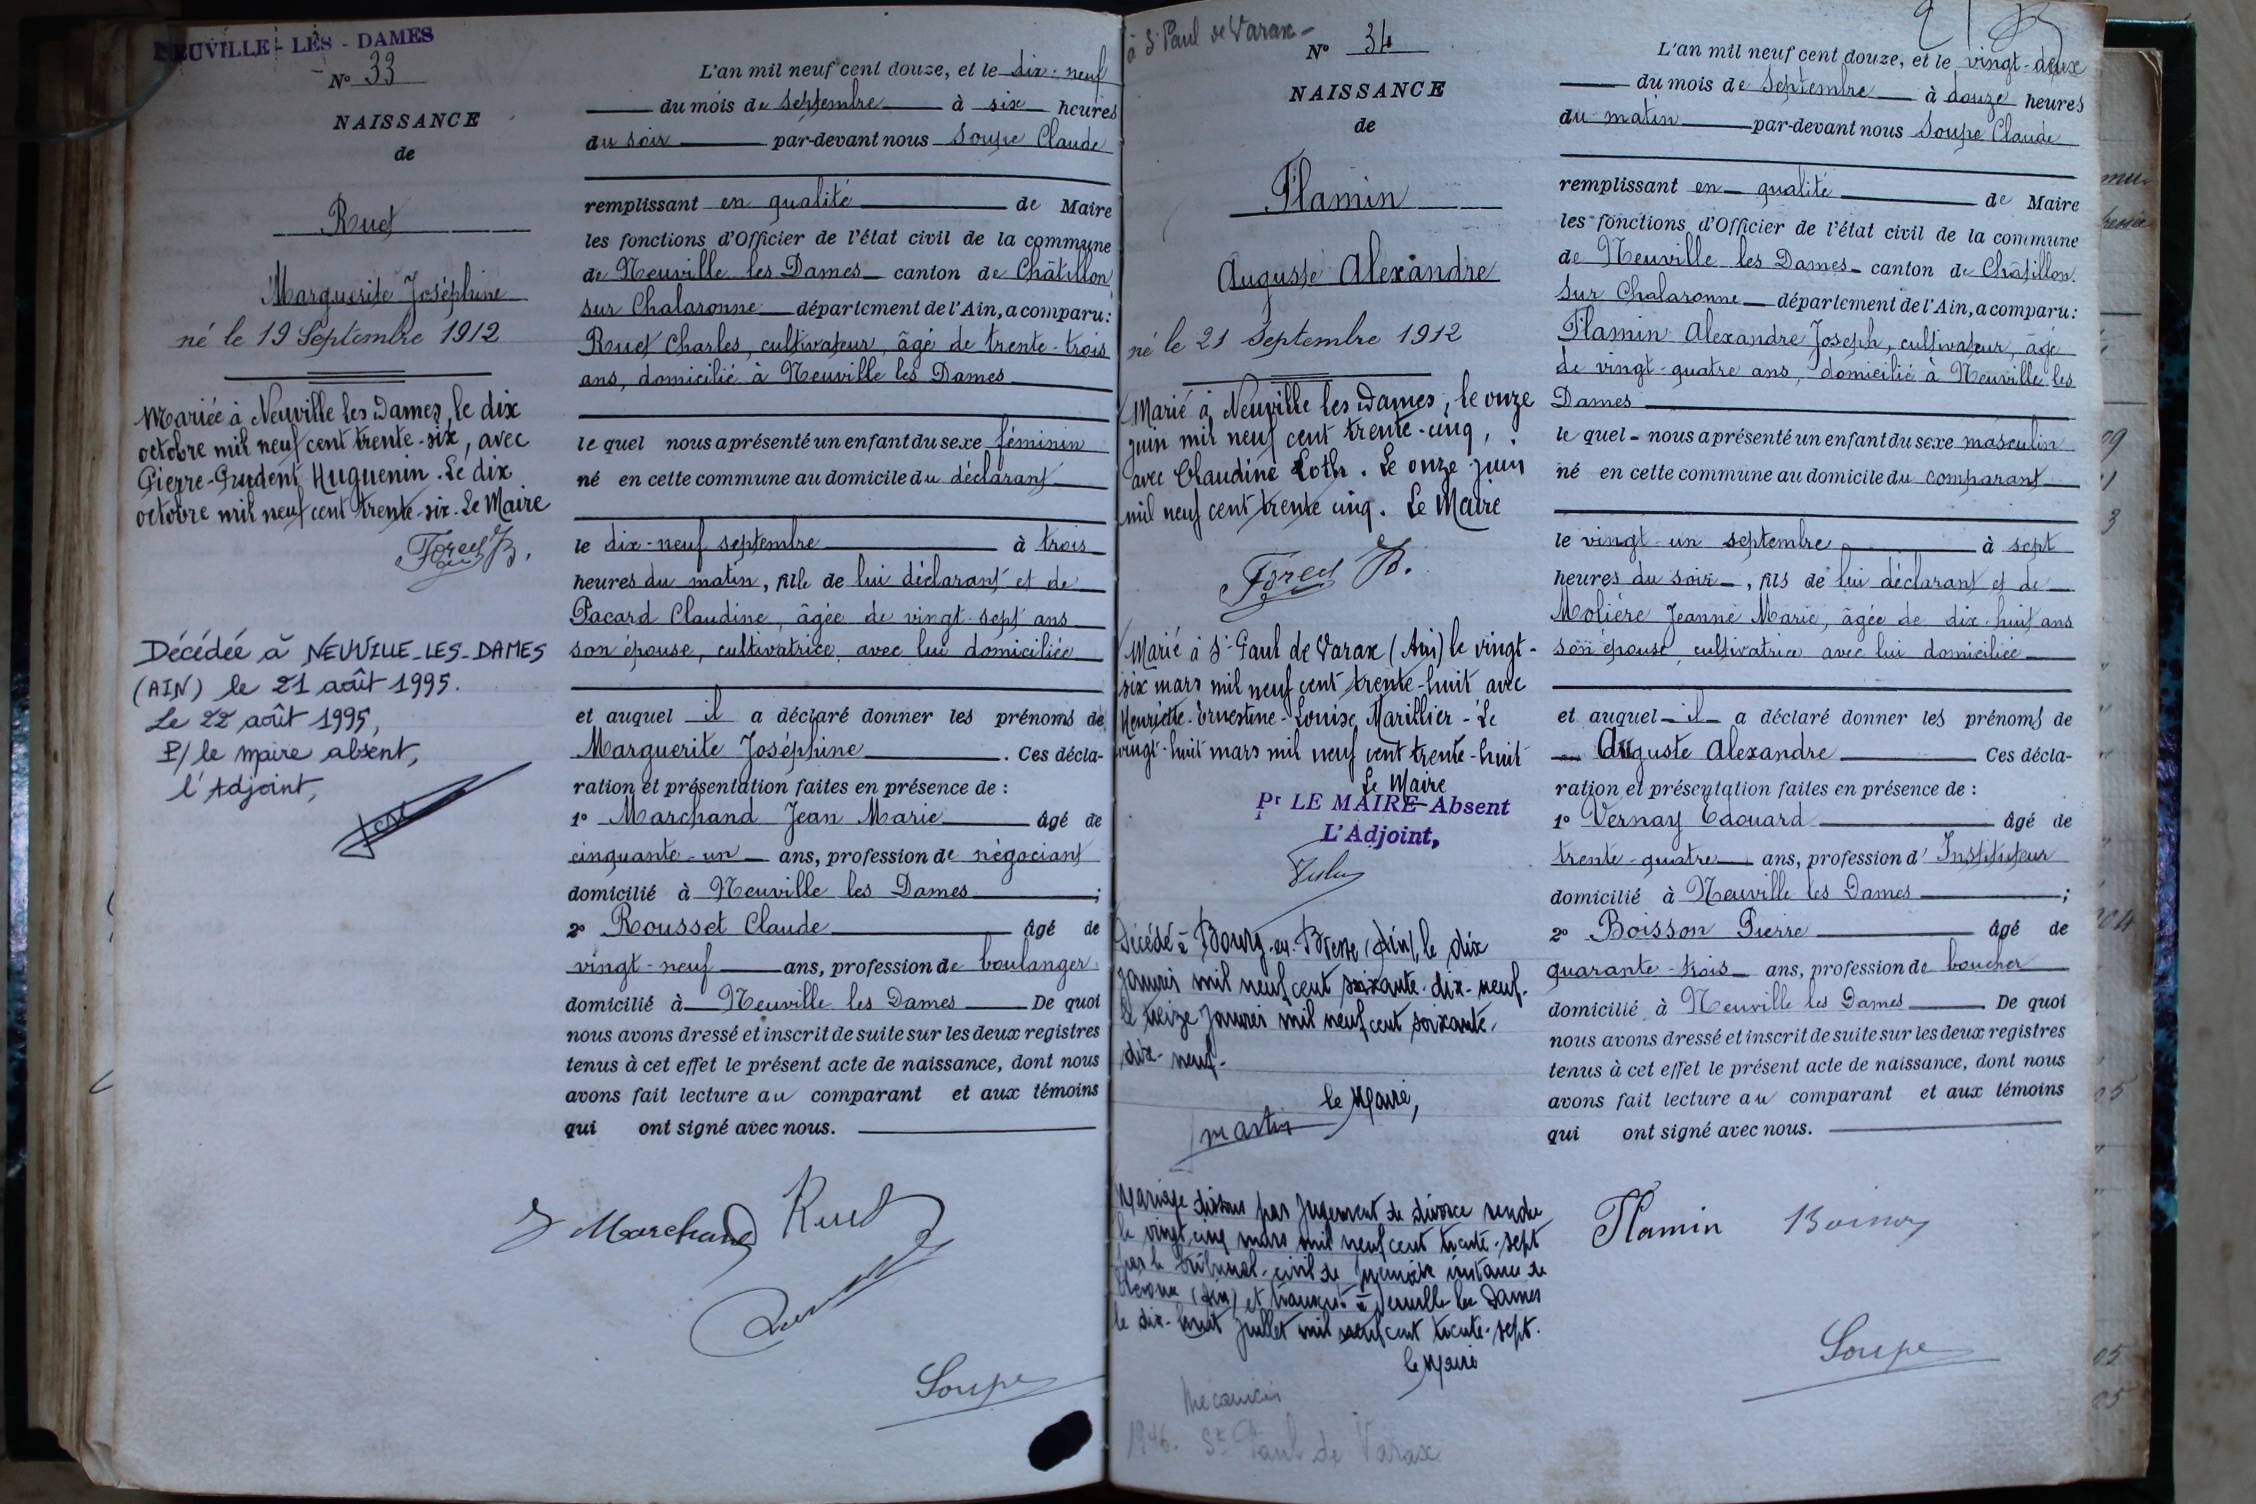 NEUVILLE - LÈS - DAMES
N° 33
NAISSANCE
de
Ruet
Marguerite Joséphine
né le 19 Septembre 1912
Mariée à Neuville les Dames, le dix
octobre mil neuf cent trente-six, avec
Pierre-Prudent Huguenin. Le dix
octobre mil neuf cent trente-six. Le Maire
Décédée à NEUVILLE-LES-DAMES
(AIN) le 21 août 1995.
Le 22 août 1995,
P/ le maire absent,
l'Adjoint,
L'an mil neuf cent douze, et le dix-neuf
du mois de Septembre à six heures
du soir par-devant nous Soupe Claude
remplissant en qualité de Maire
les fonctions d'Officier de l'état civil de la commune
de Neuville les Dames canton de Châtillon
sur Chalaronne département de l'Ain, a comparu:
Ruet Charles, cultivateur, âgé de trente-trois
ans, domicilié à Neuville les Dames
le quel nous a présenté un enfant du sexe féminin
né en cette commune au domicile du déclarant
le dix-neuf septembre à trois
heures du matin, fille de lui déclarant et de
Pacard Claudine, âgée de vingt-sept ans
son épouse, cultivatrice avec lui domiciliée
et auquel il a déclaré donner les prénoms de
Marguerite Joséphine. Ces décla-
ration et présentation faites en présence de :
1° Marchand Jean Marie âgé de
cinquante-un ans, profession de négociant
domicilié à Neuville les Dames ;
2° Rousset Claude âgé de
vingt-neuf ans, profession de boulanger
domicilié à Neuville les Dames De quoi
nous avons dressé et inscrit de suite sur les deux registres
tenus à cet effet le présent acte de naissance, dont nous
avons fait lecture au comparant et aux témoins
qui ont signé avec nous.
J Marchand Ruet
Soupe
à St Paul de Varax
N° 34
NAISSANCE
de
Flamin
Auguste Alexandre
né le 21 Septembre 1912
Marié à Neuville les Dames, le onze
juin mil neuf cent trente-cinq,
avec Claudine Loth. Le onze juin
mil neuf cent trente cinq. Le Maire
Marié à St Paul de Varax (Ain) le vingt-
six mars mil neuf cent trente-huit avec
Henriette-Ernestine-Louise Marillier - Le
vingt-huit mars mil neuf cent trente-huit
Le Maire
Pr LE MAIRE Absent
L'Adjoint,
Décédé à Bourg-en-Bresse (Ain), le dix
Janvier mil neuf cent soixante-dix-neuf.
le treize Janvier mil neuf cent soixante-
dix-neuf.
le Maire,
Martin
Mariage dissous par Jugement de divorce rendu
le vingt cinq mars mil neuf cent trente-sept
par le tribunal civil de première instance de
(Ain) et transcrit à Neuville les Dames
le dix-huit Juillet mil neuf cent trente-sept.
le Maire
Mécanicien
1946. St Paul de Varax
L'an mil neuf cent douze, et le vingt-deux
du mois de Septembre à douze heures
du matin par-devant nous Soupe Claude
remplissant en qualité de Maire
les fonctions d'Officier de l'état civil de la commune
de Neuville les Dames canton de Châtillon
sur Chalaronne département de l'Ain, a comparu:
Flamin Alexandre Joseph, cultivateur, âgé
de vingt-quatre ans, domicilié à Neuville les
Dames
le quel nous a présenté un enfant du sexe masculin
né en cette commune au domicile du comparant
le vingt-un septembre à sept
heures du soir, fils de lui déclarant et de
Molière Jeanne Marie, âgée de dix-huit ans
son épouse, cultivatrice avec lui domiciliée
et auquel il a déclaré donner les prénoms de
Auguste Alexandre Ces décla-
ration et présentation faites en présence de :
1° Vernay Edouard âgé de
trente-quatre ans, profession d'Instituteur
domicilié à Neuville les Dames ;
2° Boisson Pierre âgé de
quarante-trois ans, profession de boucher
domicilié à Neuville les Dames De quoi
nous avons dressé et inscrit de suite sur les deux registres
tenus à cet effet le présent acte de naissance, dont nous
avons fait lecture au comparant et aux témoins
qui ont signé avec nous.
Flamin Boisson
Soupe